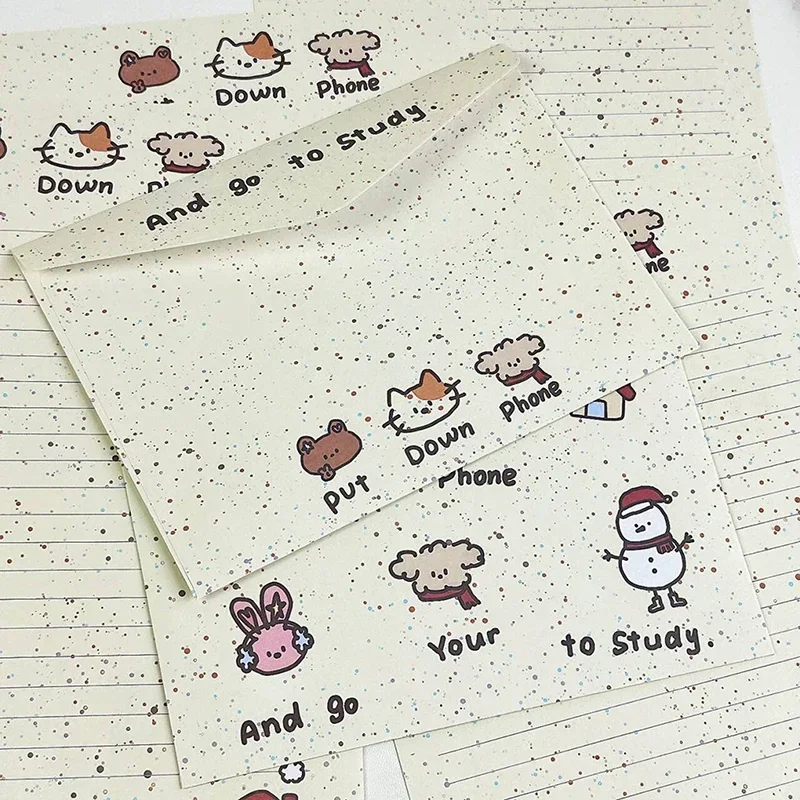 Down Phone
Down
And go to Study.
Put Down Phone
Phone
Your
And go to Study.